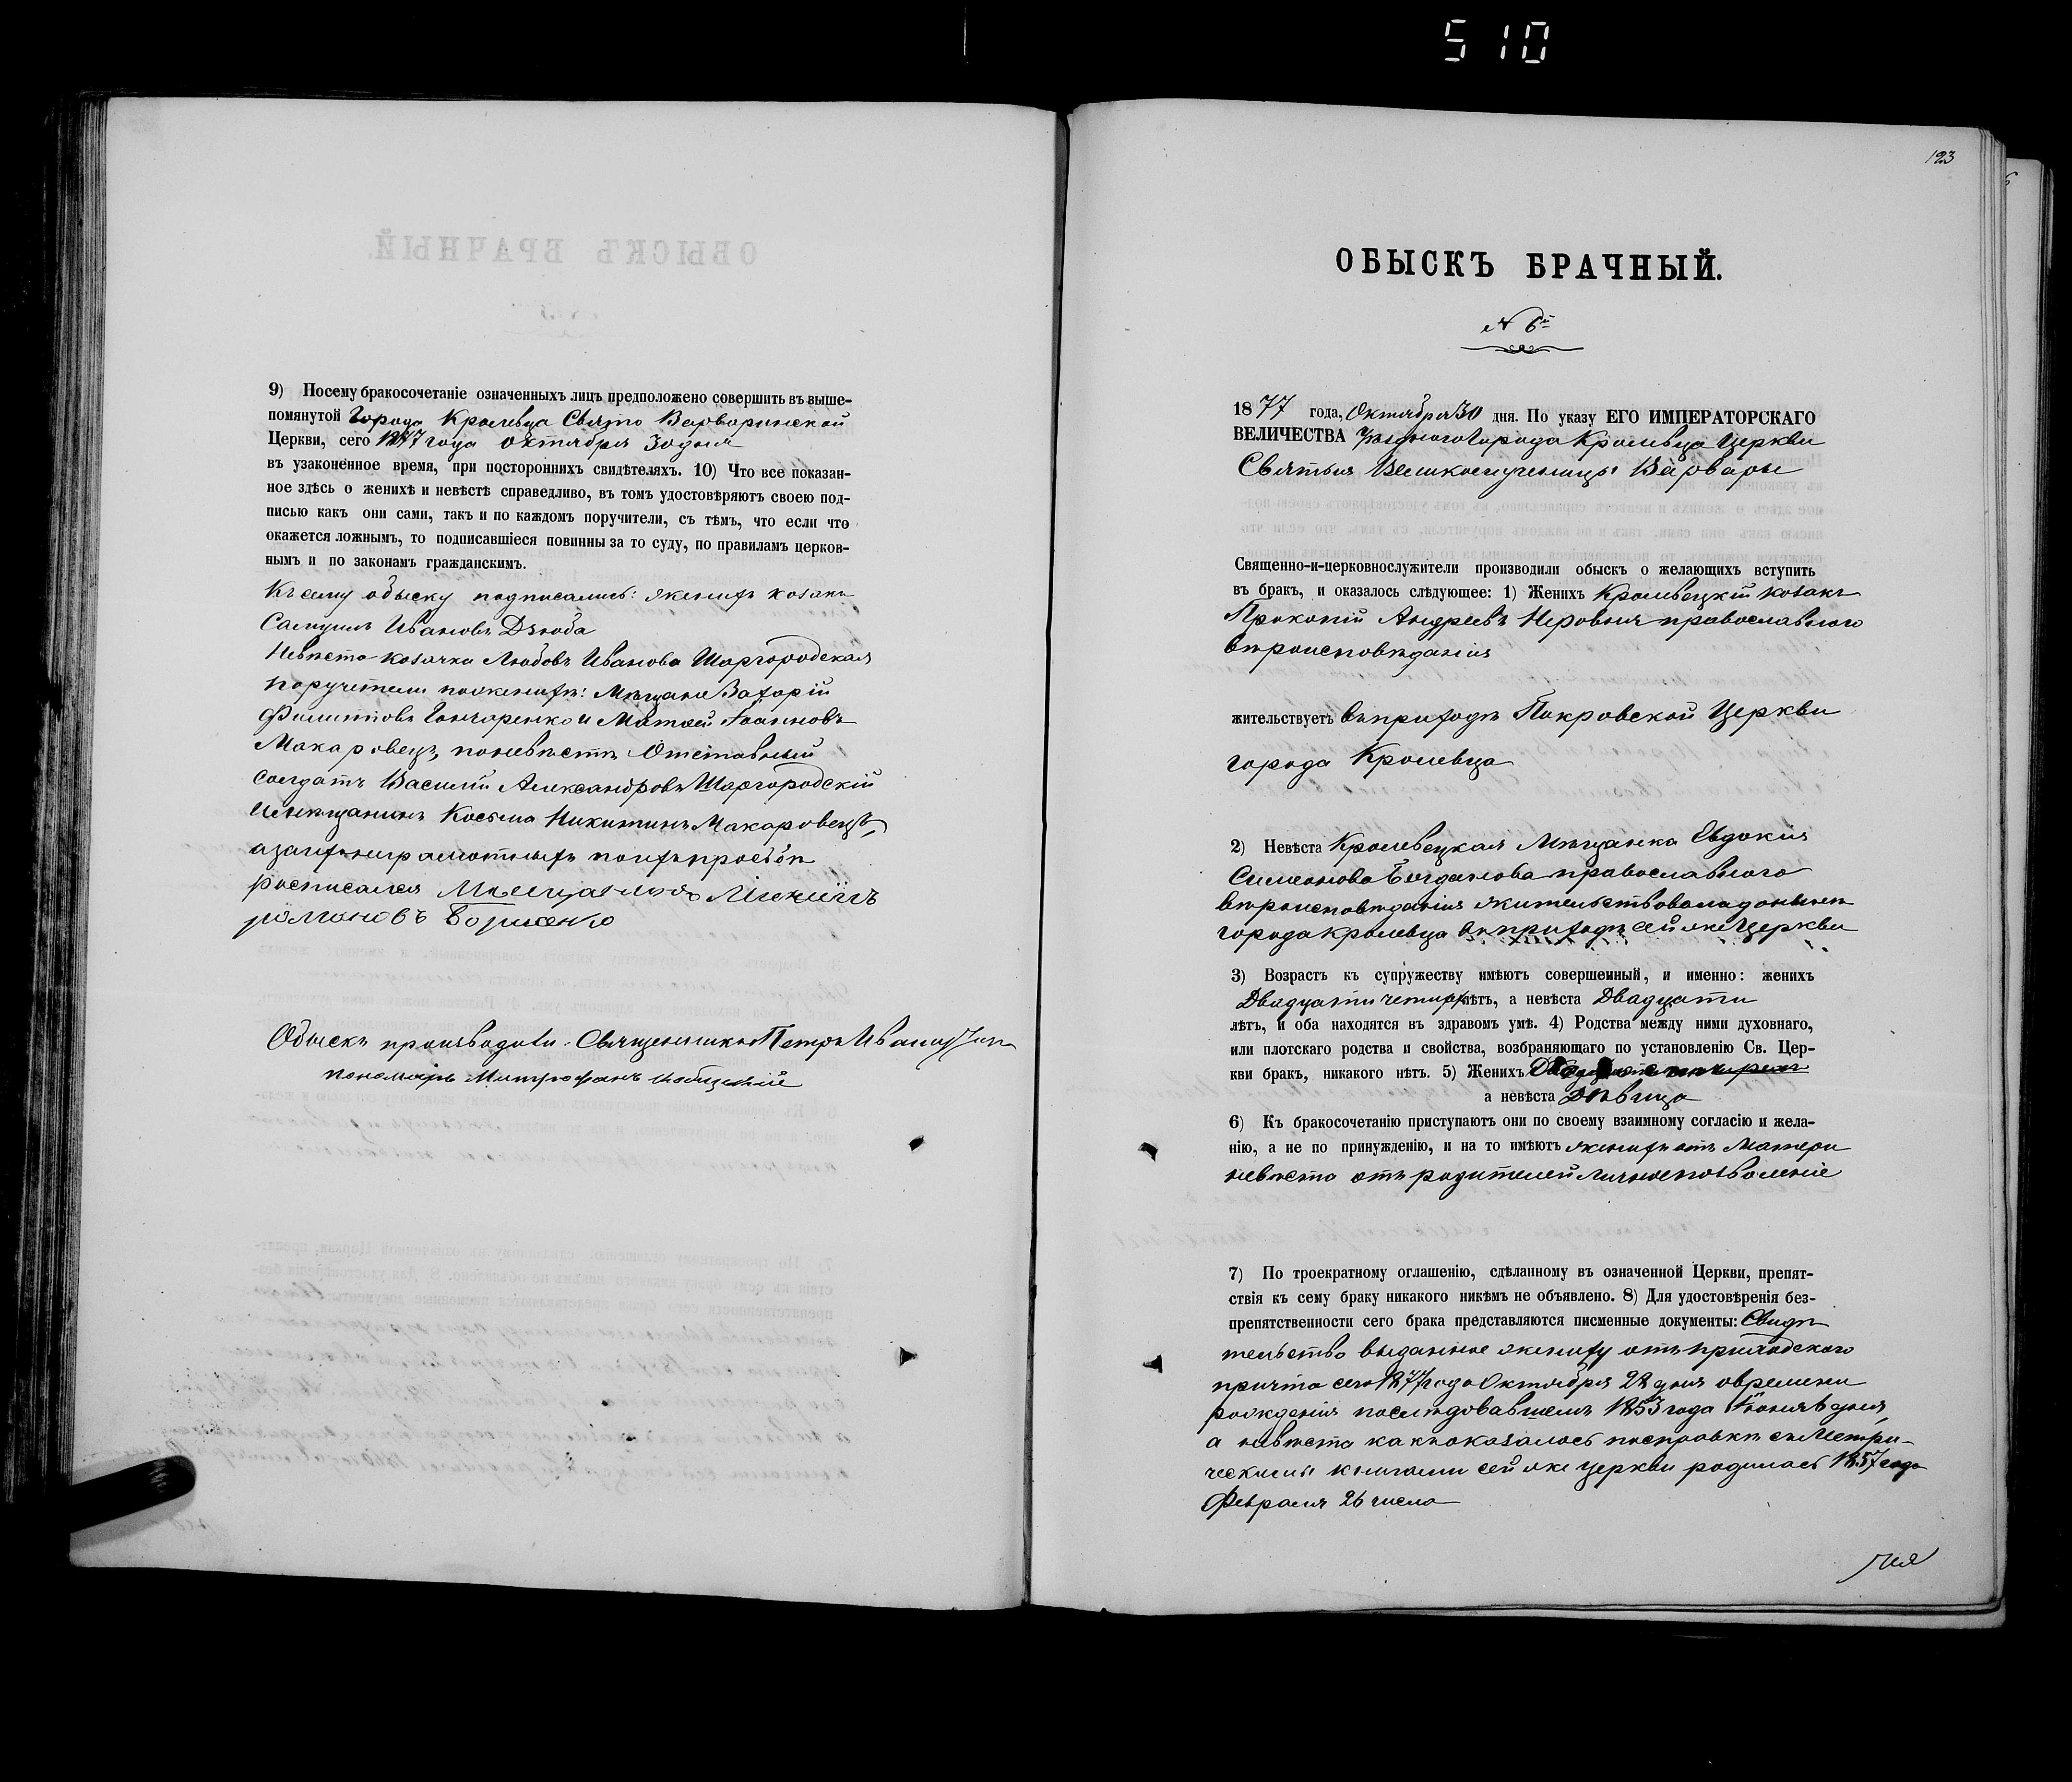 510
9) Посему бракосочетаніе означенныхъ лицъ предположено совершить въ выше-
помянутой Города Кролевца Свято Варваринской
Церкви, сего 1877 года Октября 30 дня
въ узаконенное время, при постороннихъ свидѣтеляхъ. 10) Что все показан-
ное здѣсь о женихѣ и невѣстѣ справедливо, въ томъ удостовѣряютъ своею под-
писью какъ они сами, такъ и по каждомъ поручители, съ тѣмъ, что если что
окажется ложнымъ, то подписавшіеся повинны за то суду, по правиламъ церков-
нымъ и по законамъ гражданскимъ.
Къ сему обыску подписались: женихъ козакъ
Самуилъ Ивановъ Дзюба
Невѣста козачка Любовь Иванова Шаргородская
поручители по женихѣ: Мѣщане Захарій
Филиповъ Гончаренко и Матѳей Іоанновъ
Макаровецъ, по невѣстѣ Отставный
солдатъ Василій Александровъ Шаргородскій
и мѣщанинъ Косьма Никитинъ Макаровецъ,
а за ихъ неграмотныхъ по ихъ просьбѣ
росписался
романовъ
Обыскъ производили: Священникъ Петръ
пономарь Митрофанъ
123
ОБЫСКЪ БРАЧНЫЙ.
№ 6й
1877 года, Октября 30 дня. По указу ЕГО ИМПЕРАТОРСКАГО
ВЕЛИЧЕСТВА Уѣзднаго Города Кролевца Церкви
Святыя Великомученицы Варвары
Священно-и-церковнослужители производили обыскъ о желающихъ вступить
въ бракъ, и оказалось слѣдующее: 1) Женихъ Кролевецкій козакъ
Прокопій Андреевъ Неровня православного
вѣроисповѣданія
жительствуетъ въ приходѣ Покровской Церкви
города Кролевца
2) Невѣста Кролевецкая Мѣщанка Евдокія
Симеонова Богданова православного
вѣроисповѣданія жительствовала донынѣ
города Кролевца въ приходѣ сей же Церкви
3) Возрастъ къ супружеству имѣютъ совершенный, и именно: женихъ
Двадцати четыре лѣтъ, а невѣста Двадцати
лѣтъ, и оба находятся въ здравомъ умѣ. 4) Родства между ними духовнаго,
или плотскаго родства и свойства, возбраняющаго по установленію Св. Цер-
кви бракъ, никакого нѣтъ. 5) Женихъ
а невѣста Дѣвица
6) Къ бракосочетанію приступаютъ они по своему взаимному согласію и жела-
нію, а не по принужденію, и на то имѣютъ женихъ отъ Матери
невѣста отъ родителей личное позволеніе
7) По троекратному оглашенію, сдѣланному въ означенной Церкви, препят-
ствія къ сему браку никакого никѣмъ не объявлено. 8) Для удостовѣренія без-
препятственности сего брака представляются писменные документы: Свидѣ
тельство выданное жениху отъ приходского
причта сего 1877 года Октября 28 дня о времени
рожденія последовавшемъ 1853 года Іюня 8 дня,
а невѣста какъ оказалось по справкѣ съ Метри-
ческими книгами сей же церкви родилась 1857 года
Февраля 26 числа